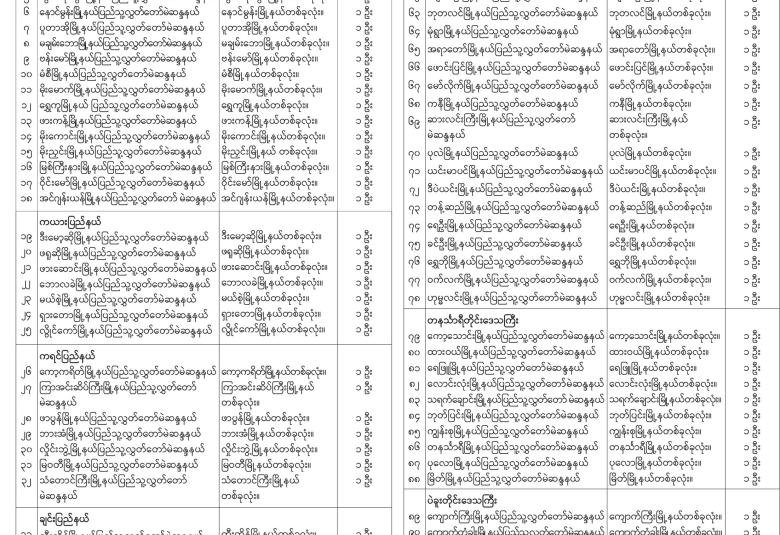 ၆ နောင်မွန်းမြို့နယ်ပြည်သူ့လွှတ်တော်မဲဆန္ဒနယ် နောင်မွန်းမြို့နယ်တစ်ခုလုံး။ ၁ ဦး
၇ ပူတာအိုမြို့နယ်ပြည်သူ့လွှတ်တော်မဲဆန္ဒနယ် ပူတာအိုမြို့နယ်တစ်ခုလုံး။ ၁ ဦး
၈ မချမ်းဘောမြို့နယ်ပြည်သူ့လွှတ်တော်မဲဆန္ဒနယ် မချမ်းဘောမြို့နယ်တစ်ခုလုံး။ ၁ ဦး
၉ ဗန်းမော်မြို့နယ်ပြည်သူ့လွှတ်တော်မဲဆန္ဒနယ် ဗန်းမော်မြို့နယ်တစ်ခုလုံး။ ၁ ဦး
၁၀ မံစီမြို့နယ်ပြည်သူ့လွှတ်တော်မဲဆန္ဒနယ် မံစီမြို့နယ်တစ်ခုလုံး။ ၁ ဦး
၁၁ မိုးမောက်မြို့နယ်ပြည်သူ့လွှတ်တော်မဲဆန္ဒနယ် မိုးမောက်မြို့နယ်တစ်ခုလုံး။ ၁ ဦး
၁၂ ရွှေကူမြို့နယ် ပြည်သူ့လွှတ်တော်မဲဆန္ဒနယ် ရွှေကူမြို့နယ်တစ်ခုလုံး။ ၁ ဦး
၁၃ ဖားကန့်မြို့နယ်ပြည်သူ့လွှတ်တော်မဲဆန္ဒနယ် ဖားကန့်မြို့နယ်တစ်ခုလုံး။ ၁ ဦး
၁၄ မိုးကောင်းမြို့နယ်ပြည်သူ့လွှတ်တော်မဲဆန္ဒနယ် မိုးကောင်းမြို့နယ်တစ်ခုလုံး။ ၁ ဦး
၁၅ မိုးညှင်းမြို့နယ်ပြည်သူ့လွှတ်တော်မဲဆန္ဒနယ် မိုးညှင်းမြို့နယ် တစ်ခုလုံး။ ၁ ဦး
၁၆ မြစ်ကြီးနားမြို့နယ်ပြည်သူ့လွှတ်တော်မဲဆန္ဒနယ် မြစ်ကြီးနားမြို့နယ်တစ်ခုလုံး။ ၁ ဦး
၁၇ ဝိုင်းမော်မြို့နယ်ပြည်သူ့လွှတ်တော်မဲဆန္ဒနယ် ဝိုင်းမော်မြို့နယ်တစ်ခုလုံး။ ၁ ဦး
၁၈ အင်ဂျန်းယန်မြို့နယ်ပြည်သူ့လွှတ်တော် မဲဆန္ဒနယ် အင်ဂျန်းယန်မြို့နယ်တစ်ခုလုံး။ ၁ ဦး
ကယားပြည်နယ်
၁၉ ဒီးမော့ဆိုမြို့နယ်ပြည်သူ့လွှတ်တော်မဲဆန္ဒနယ် ဒီးမော့ဆိုမြို့နယ်တစ်ခုလုံး။ ၁ ဦး
၂၀ ဖရူဆိုမြို့နယ်ပြည်သူ့လွှတ်တော်မဲဆန္ဒနယ် ဖရူဆိုမြို့နယ်တစ်ခုလုံး။ ၁ ဦး
၂၁ ဖားဆောင်းမြို့နယ်ပြည်သူ့လွှတ်တော်မဲဆန္ဒနယ် ဖားဆောင်းမြို့နယ်တစ်ခုလုံး။ ၁ ဦး
၂၂ ဘောလခဲမြို့နယ်ပြည်သူ့လွှတ်တော်မဲဆန္ဒနယ် ဘောလခဲမြို့နယ်တစ်ခုလုံး။ ၁ ဦး
၂၃ မယ်စဲ့မြို့နယ်ပြည်သူ့လွှတ်တော်မဲဆန္ဒနယ် မယ်စဲ့မြို့နယ်တစ်ခုလုံး။ ၁ ဦး
၂၄ ရှားတောမြို့နယ်ပြည်သူ့လွှတ်တော်မဲဆန္ဒနယ် ရှားတောမြို့နယ်တစ်ခုလုံး။ ၁ ဦး
၂၅ လွိုင်ကော်မြို့နယ်ပြည်သူ့လွှတ်တော်မဲဆန္ဒနယ် လွိုင်ကော်မြို့နယ်တစ်ခုလုံး။ ၁ ဦး
ကရင်ပြည်နယ်
၂၆ ကော့ကရိတ်မြို့နယ်ပြည်သူ့လွှတ်တော်မဲဆန္ဒနယ် ကော့ကရိတ်မြို့နယ်တစ်ခုလုံး။ ၁ ဦး
၂၇ ကြာအင်းဆိပ်ကြီးမြို့နယ်ပြည်သူ့လွှတ်တော် ကြာအင်းဆိပ်ကြီးမြို့နယ် ၁ ဦး
မဲဆန္ဒနယ် တစ်ခုလုံး။
၂၈ ဖာပွန်မြို့နယ်ပြည်သူ့လွှတ်တော်မဲဆန္ဒနယ် ဖာပွန်မြို့နယ်တစ်ခုလုံး။ ၁ ဦး
၂၉ ဘားအံမြို့နယ်ပြည်သူ့လွှတ်တော်မဲဆန္ဒနယ် ဘားအံမြို့နယ်တစ်ခုလုံး။ ၁ ဦး
၃၀ လှိုင်းဘွဲ့မြို့နယ်ပြည်သူ့လွှတ်တော်မဲဆန္ဒနယ် လှိုင်းဘွဲ့မြို့နယ်တစ်ခုလုံး။ ၁ ဦး
၃၁ မြဝတီမြို့နယ်ပြည်သူ့လွှတ်တော်မဲဆန္ဒနယ် မြဝတီမြို့နယ်တစ်ခုလုံး။ ၁ ဦး
၃၂ သံတောင်ကြီးမြို့နယ်ပြည်သူ့လွှတ်တော် သံတောင်ကြီးမြို့နယ် ၁ ဦး
မဲဆန္ဒနယ် တစ်ခုလုံး။
ချင်းပြည်နယ်
၆၃ ဘုတလင်မြို့နယ်ပြည်သူ့လွှတ်တော်မဲဆန္ဒနယ် ဘုတလင်မြို့နယ်တစ်ခုလုံး။ ၁ ဦး
၆၄ မုံရွာမြို့နယ်ပြည်သူ့လွှတ်တော်မဲဆန္ဒနယ် မုံရွာမြို့နယ်တစ်ခုလုံး။ ၁ ဦး
၆၅ အရာတော်မြို့နယ်ပြည်သူ့လွှတ်တော်မဲဆန္ဒနယ် အရာတော်မြို့နယ်တစ်ခုလုံး။ ၁ ဦး
၆၆ ဖောင်းပြင်မြို့နယ်ပြည်သူ့လွှတ်တော်မဲဆန္ဒနယ် ဖောင်းပြင်မြို့နယ်တစ်ခုလုံး။ ၁ ဦး
၆၇ မော်လိုက်မြို့နယ်ပြည်သူ့လွှတ်တော်မဲဆန္ဒနယ် မော်လိုက်မြို့နယ်တစ်ခုလုံး။ ၁ ဦး
၆၈ ကနီမြို့နယ်ပြည်သူ့လွှတ်တော်မဲဆန္ဒနယ် ကနီမြို့နယ်တစ်ခုလုံး။ ၁ ဦး
၆၉ ဆားလင်းကြီးမြို့နယ်ပြည်သူ့လွှတ်တော် ဆားလင်းကြီးမြို့နယ် ၁ ဦး
မဲဆန္ဒနယ် တစ်ခုလုံး။
၇၀ ပုလဲမြို့နယ်ပြည်သူ့လွှတ်တော်မဲဆန္ဒနယ် ပုလဲမြို့နယ်တစ်ခုလုံး။ ၁ ဦး
၇၁ ယင်းမာပင်မြို့နယ်ပြည်သူ့လွှတ်တော်မဲဆန္ဒနယ် ယင်းမာပင်မြို့နယ်တစ်ခုလုံး။ ၁ ဦး
၇၂ ဒီပဲယင်းမြို့နယ်ပြည်သူ့လွှတ်တော်မဲဆန္ဒနယ် ဒီပဲယင်းမြို့နယ်တစ်ခုလုံး။ ၁ ဦး
၇၃ တန့်ဆည်မြို့နယ်ပြည်သူ့လွှတ်တော်မဲဆန္ဒနယ် တန့်ဆည်မြို့နယ်တစ်ခုလုံး။ ၁ ဦး
၇၄ ရေဦးမြို့နယ်ပြည်သူ့လွှတ်တော်မဲဆန္ဒနယ် ရေဦးမြို့နယ်တစ်ခုလုံး။ ၁ ဦး
၇၅ ခင်ဦးမြို့နယ်ပြည်သူ့လွှတ်တော်မဲဆန္ဒနယ် ခင်ဦးမြို့နယ်တစ်ခုလုံး။ ၁ ဦး
၇၆ ရွှေဘိုမြို့နယ်ပြည်သူ့လွှတ်တော်မဲဆန္ဒနယ် ရွှေဘိုမြို့နယ်တစ်ခုလုံး။ ၁ ဦး
၇၇ ဝက်လက်မြို့နယ်ပြည်သူ့လွှတ်တော်မဲဆန္ဒနယ် ဝက်လက်မြို့နယ်တစ်ခုလုံး။ ၁ ဦး
၇၈ ဟုမ္မလင်းမြို့နယ်ပြည်သူ့လွှတ်တော်မဲဆန္ဒနယ် ဟုမ္မလင်းမြို့နယ်တစ်ခုလုံး။ ၁ ဦး
တနင်္သာရီတိုင်းဒေသကြီး
၇၉ ကော့သောင်းမြို့နယ်ပြည်သူ့လွှတ်တော်မဲဆန္ဒနယ် ကော့သောင်းမြို့နယ်တစ်ခုလုံး။ ၁ ဦး
၈၀ ထားဝယ်မြို့နယ်ပြည်သူ့လွှတ်တော်မဲဆန္ဒနယ် ထားဝယ်မြို့နယ်တစ်ခုလုံး။ ၁ ဦး
၈၁ ရေဖြူမြို့နယ်ပြည်သူ့လွှတ်တော်မဲဆန္ဒနယ် ရေဖြူမြို့နယ်တစ်ခုလုံး။ ၁ ဦး
၈၂ လောင်းလုံးမြို့နယ်ပြည်သူ့လွှတ်တော်မဲဆန္ဒနယ် လောင်းလုံးမြို့နယ်တစ်ခုလုံး။ ၁ ဦး
၈၃ သရက်ချောင်းမြို့နယ်ပြည်သူ့လွှတ်တော်မဲဆန္ဒနယ် သရက်ချောင်းမြို့နယ်တစ်ခုလုံး။ ၁ ဦး
၈၄ ဘုတ်ပြင်းမြို့နယ်ပြည်သူ့လွှတ်တော်မဲဆန္ဒနယ် ဘုတ်ပြင်းမြို့နယ်တစ်ခုလုံး။ ၁ ဦး
၈၅ ကျွန်းစုမြို့နယ်ပြည်သူ့လွှတ်တော်မဲဆန္ဒနယ် ကျွန်းစုမြို့နယ်တစ်ခုလုံး။ ၁ ဦး
၈၆ တနင်္သာရီမြို့နယ်ပြည်သူ့လွှတ်တော်မဲဆန္ဒနယ် တနင်္သာရီမြို့နယ်တစ်ခုလုံး။ ၁ ဦး
၈၇ ပုလောမြို့နယ်ပြည်သူ့လွှတ်တော်မဲဆန္ဒနယ် ပုလောမြို့နယ်တစ်ခုလုံး။ ၁ ဦး
၈၈ မြိတ်မြို့နယ်ပြည်သူ့လွှတ်တော်မဲဆန္ဒနယ် မြိတ်မြို့နယ်တစ်ခုလုံး။ ၁ ဦး
ပဲခူးတိုင်းဒေသကြီး
၈၉ ကျောက်ကြီးမြို့နယ်ပြည်သူ့လွှတ်တော်မဲဆန္ဒနယ် ကျောက်ကြီးမြို့နယ်တစ်ခုလုံး။ ၁ ဦး
၉၀ ကျောက်တံခါးမြို့နယ်ပြည်သူ့လွှတ်တော်မဲဆန္ဒနယ် ကျောက်တံခါးမြို့နယ်တစ်ခုလုံး။ ၁ ဦး